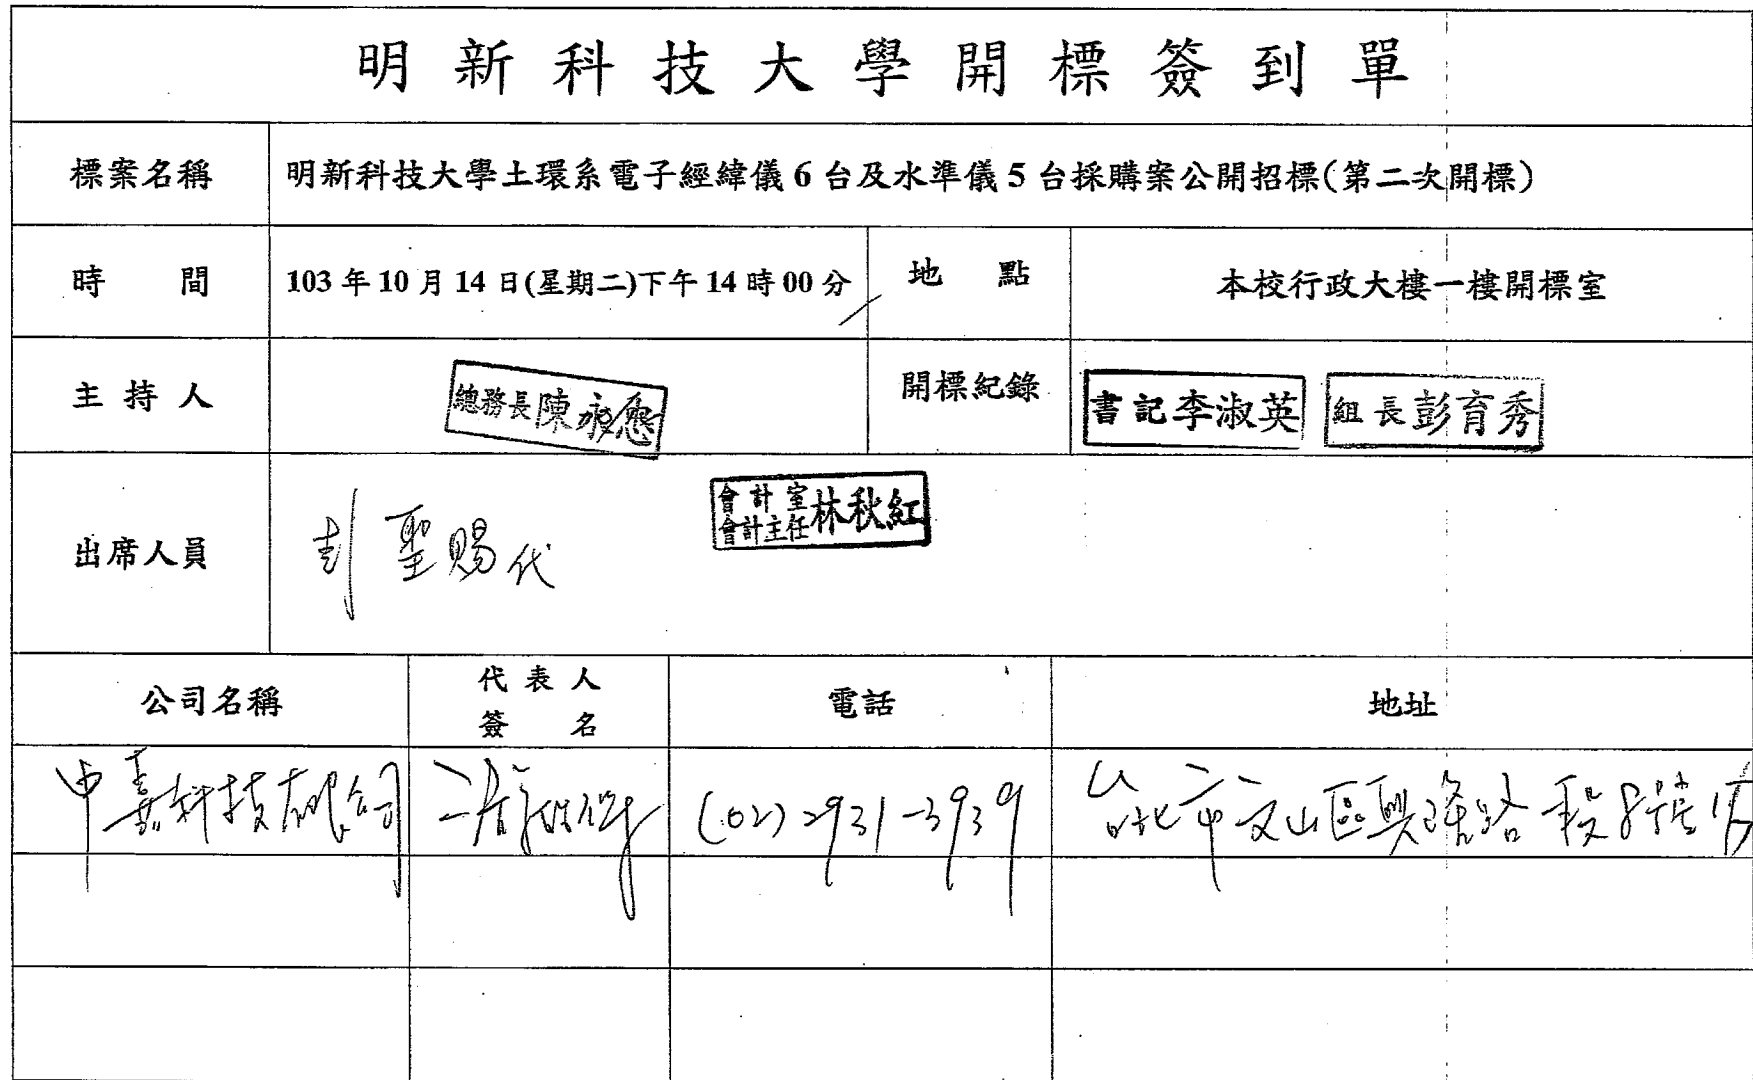 明新科技大學開標簽到單
標案名稱 明新科技大學土環系電子經緯儀 6 台及水準儀 5 台採購案公開招標(第二次開標)
時 間 103 年 10 月 14 日(星期二)下午 14 時 00 分 地 點 本校行政大樓一樓開標室
主 持 人 總務長陳永應 開標紀錄 書記李淑英 組長彭育秀
會計室
出席人員 彭聖賜代 會計主任林秋紅
公司名稱 代表人 電話 地址
簽 名
中嘉科技有限公司 (02)2931-3939 台北市文山區興隆路 段8號